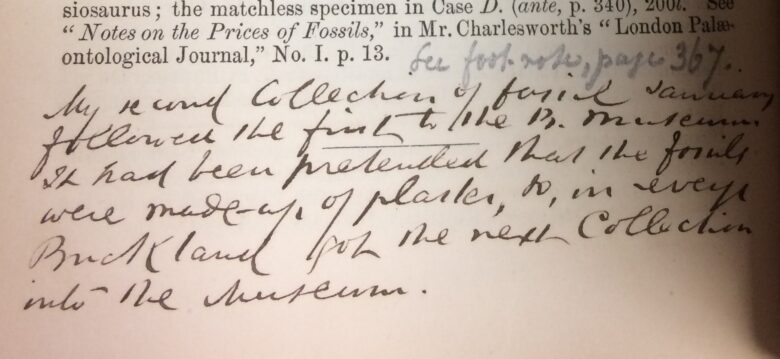 siosaurus; the matchless specimen in Case D. (ante, p. 340), 200l. See
"Notes on the Prices of Fossils," in Mr. Charlesworth's "London Palæ-
ontological Journal," No. I. p. 13.
See foot-note, page 367.
My second Collection of fossil
followed the first to the B. Museum.
It had been pretended that the fossils
were made-up of plaster, so, in
Buckland got the next Collection
into the Museum.